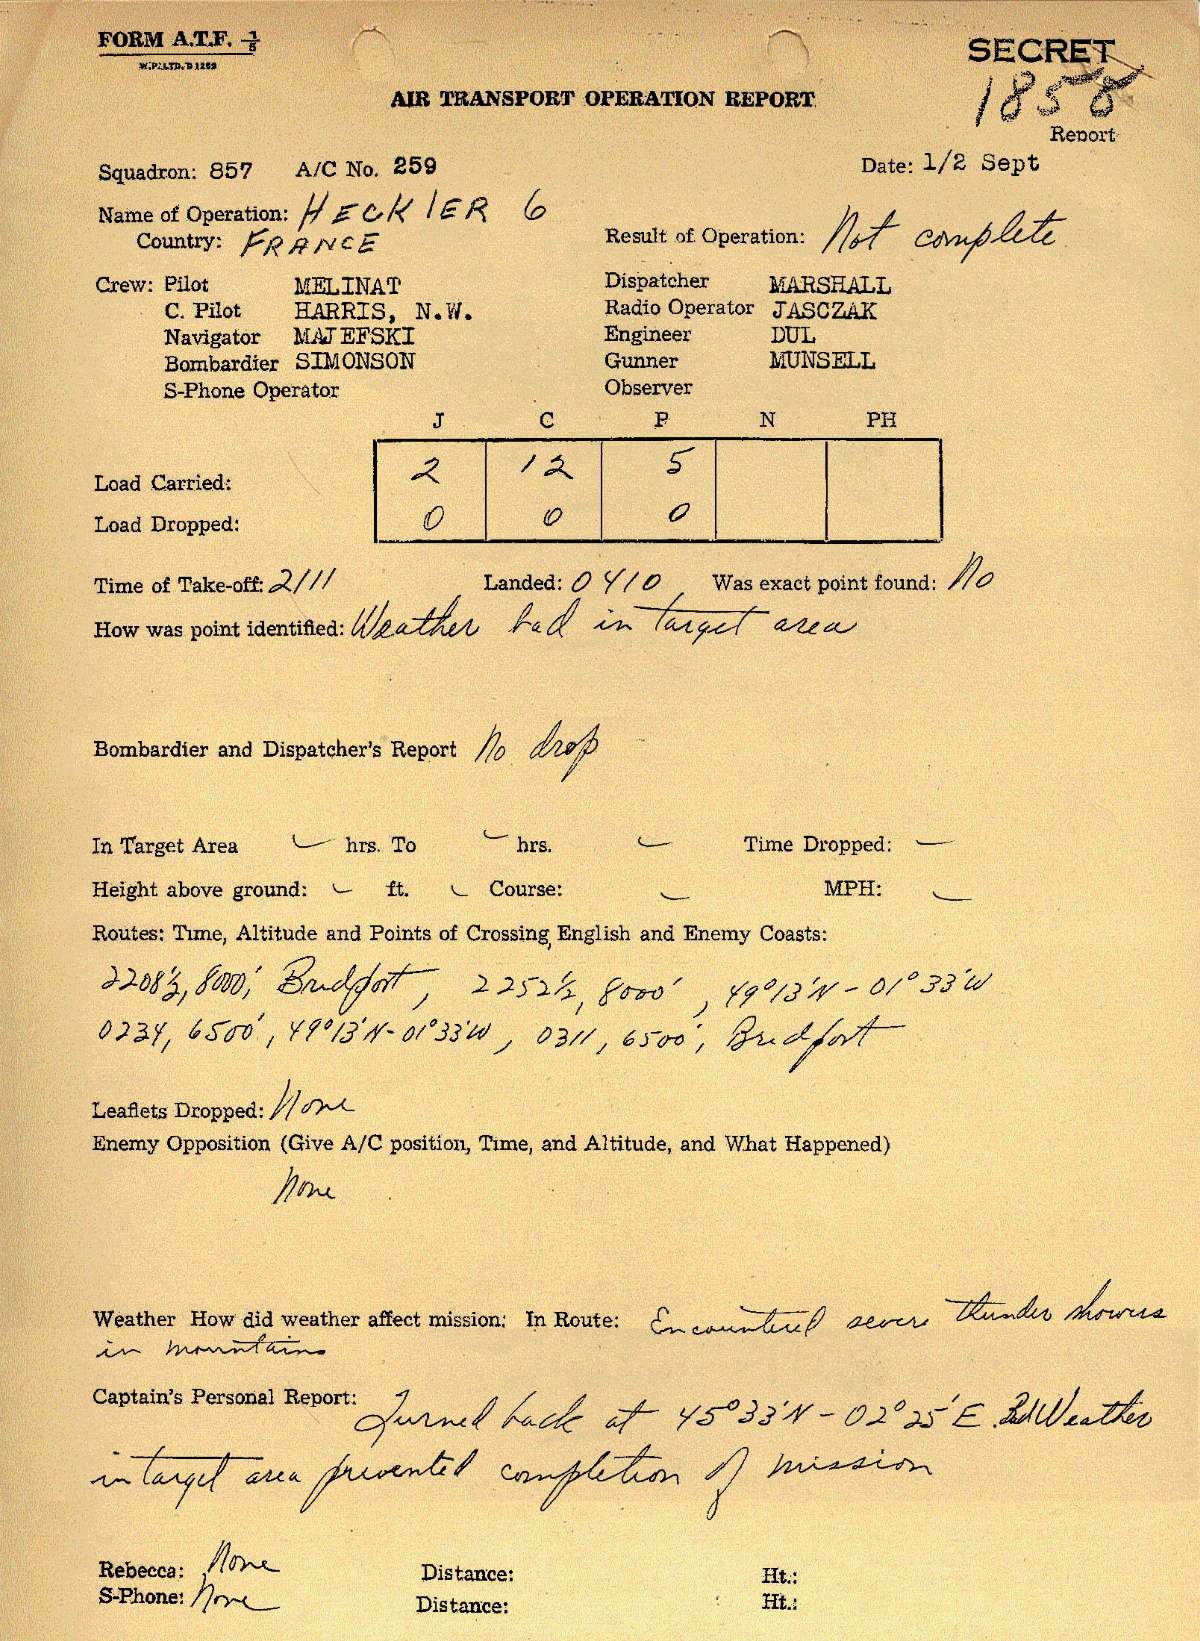 FORM A.T.F. 1/5
W.P.LTD. D1269
SECRET
1858
AIR TRANSPORT OPERATION REPORT
Report
Squadron: 857 A/C No. 259 Date: 1/2 Sept
Name of Operation: HECKLER 6
Country: FRANCE Result of Operation: Not complete
Crew: Pilot MELINAT Dispatcher MARSHALL
C. Pilot HARRIS, N.W. Radio Operator JASCZAK
Navigator MAJEFSKI Engineer DUL
Bombardier SIMONSON Gunner MUNSELL
S-Phone Operator Observer
J C P N PH
Load Carried: 2 12 5
Load Dropped: 0 0 0
Time of Take-off: 2111 Landed: 0410 Was exact point found: No
How was point identified: Weather bad in target area
Bombardier and Dispatcher's Report No drop
In Target Area hrs. To hrs. Time Dropped:
Height above ground: ft. Course: MPH:
Routes: Time, Altitude and Points of Crossing English and Enemy Coasts:
2208½, 8000', Bridport, 2252½, 8000', 49°13'N - 01°33'W
0234, 6500', 49°13'N - 01°33'W, 0311, 6500', Bridport
Leaflets Dropped: None
Enemy Opposition (Give A/C position, Time, and Altitude, and What Happened)
None
Weather How did weather affect mission: In Route: Encountered severe thunder showers
in mountains
Captain's Personal Report: Turned back at 45°33'N - 02°25'E. Bad Weather
in target area prevented completion of mission
Rebecca: None Distance: Ht.:
S-Phone: None Distance: Ht.: